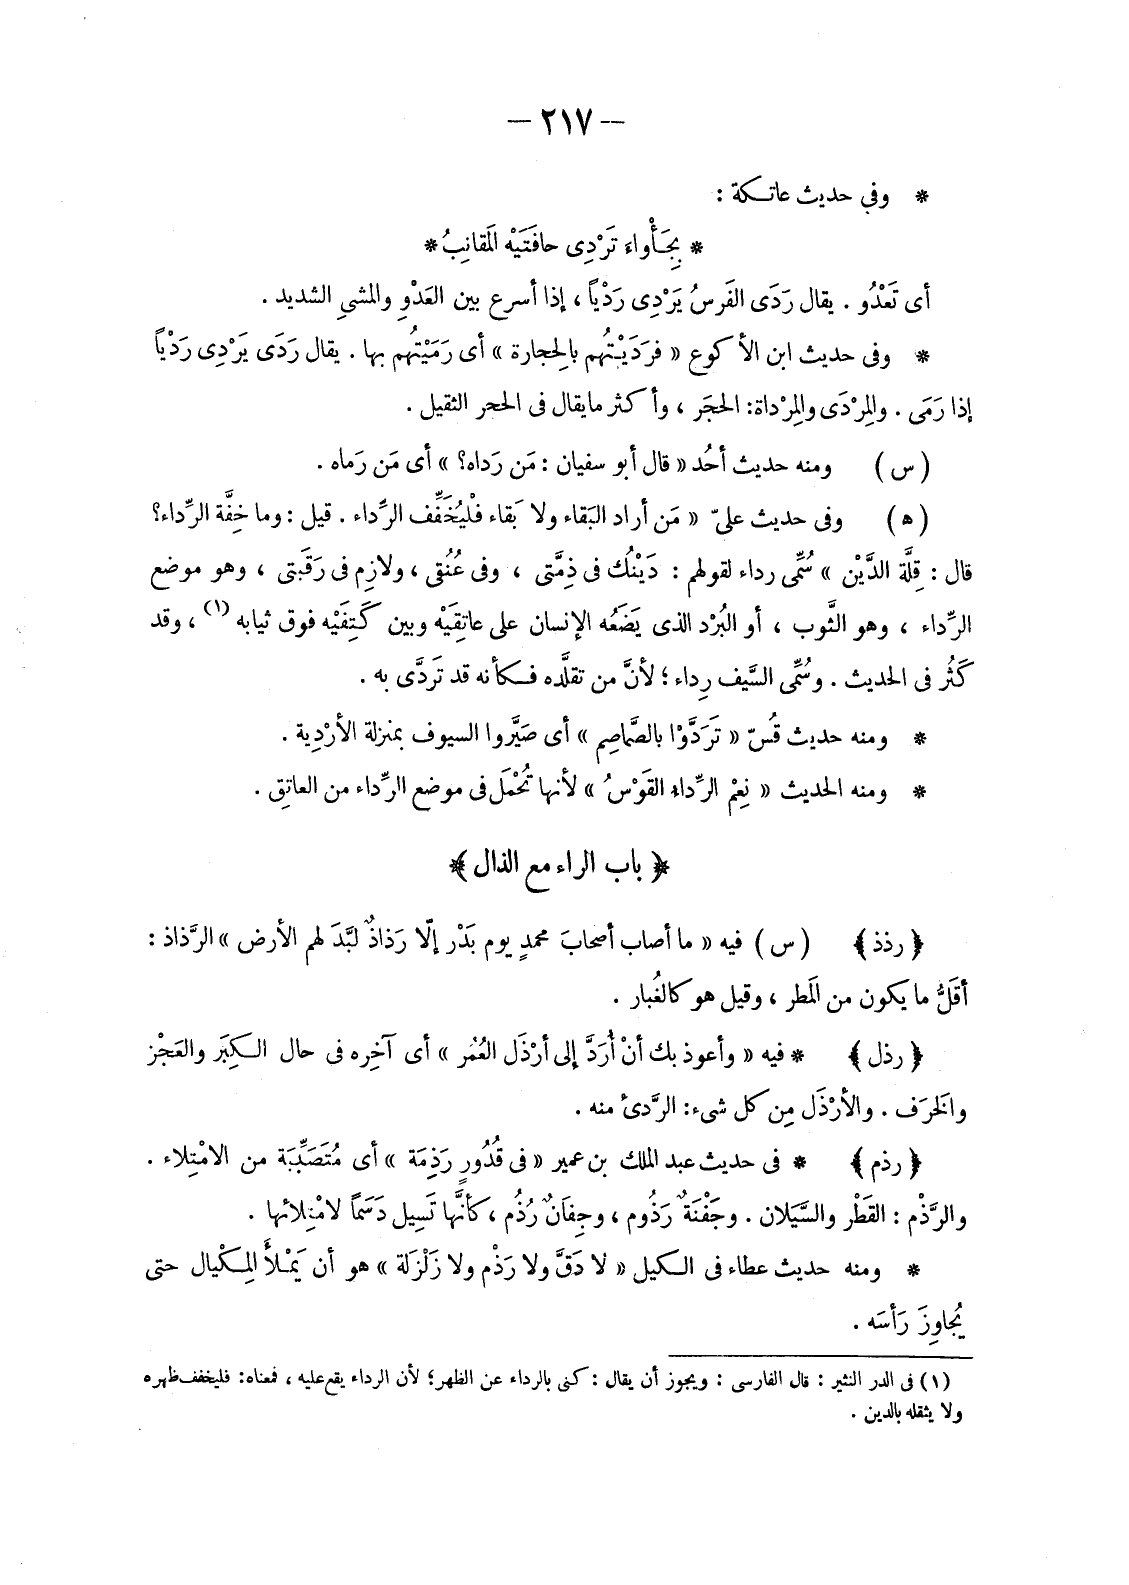 — ٢١٧ —
* وفى حديث عاتكة :
* بِجَأْواءَ تَرْدِى حافَتَيْه المَقانِبُ *
أى تَعْدُو . يقال رَدَى الفَرسُ يَرْدِى رَدْياً ، إذا أسرع بين العَدْوِ والمشىِ الشديد .
* وفى حديث ابن الأكوع « فرَدَيْتُهم بالحِجارة » أى رَمَيْتُهم بها . يقال رَدَى يَرْدِى رَدْياً
إذا رَمَى . والمِرْدَى والمِرْداة: الحجَر ، وأكثر مايقال فى الحجر الثقيل .
(س) ومنه حديث أُحُد « قال أبو سفيان : مَن رَداه؟ » أى مَن رَماه .
(ه) وفى حديث علىّ « مَن أراد البَقاء ولا بَقاء فلْيُخَفِّف الرِّداء . قيل : وما خِفَّة الرِّداء؟
قال : قِلَّة الدَّيْن » سُمِّى رداء لقولهم : دَيْنُك فى ذِمَّتى ، وفى عُنُقى ، ولازِم فى رَقَبتى ، وهو موضع
الرِّداء ، وهو الثَّوب ، أو البُرْد الذى يَضَعُه الإنسان على عاتِقَيْه وبين كَتِفَيْه فوق ثيابه (١) ، وقد
كَثُر فى الحديث . وسُمِّى السَّيف رِداء ؛ لأنَّ من تقلَّده فكأنه قد تَردَّى به .
* ومنه حديث قُسّ « تَرَدَّوْا بالصَّماصِم » أى صَيَّروا السيوف بمنزلة الأرْدِية .
* ومنه الحديث « نِعْم الرِّداء القَوْسُ » لأنها تُحْمَل فى موضع الرِّداء من العاتِق .
﴿ باب الراء مع الذال ﴾
﴿ رذذ ﴾ (س) فيه « ما أصاب أصحابَ محمدٍ يوم بَدْر إلّا رَذاذٌ لبَّدَ لهم الأرض » الرَّذاذ :
أقَلُّ ما يكون من المَطر ، وقيل هو كالغُبار .
﴿ رذل ﴾ * فيه « وأعوذ بك أنْ أُرَدَّ إلى أرْذَل العُمُر » أى آخِره فى حال الكِبَر والعَجْز
والخَرَف . والأرْذَل مِن كل شىء: الرَّدئ منه .
﴿ رذم ﴾ * فى حديث عبد الملك بن عمير « فى قُدُورٍ رَذِمَة » أى مُتَصَبِّبَة من الامْتِلاء .
والرَّذْم : القَطْر والسَّيَلان . وجَفْنَةٌ رَذُوم ، وجِفاَنٌ رُذُم ، كأنَّها تَسِيل دَسَمًا لامْتِلائها .
* ومنه حديث عطاء فى الكيل « لا دَقَّ ولا رَذْم ولا زَلْزَلة » هو أن يَمْلأَ المِكْيال حتى
يُجاوِزَ رَأسَه .
(١) فى الدر النثير : قال الفارسى : ويجوز أن يقال : كنى بالرداء عن الظهر؛ لأن الرداء يقع عليه ، فمعناه: فليخفف ظهره
ولا يثقله بالدين .